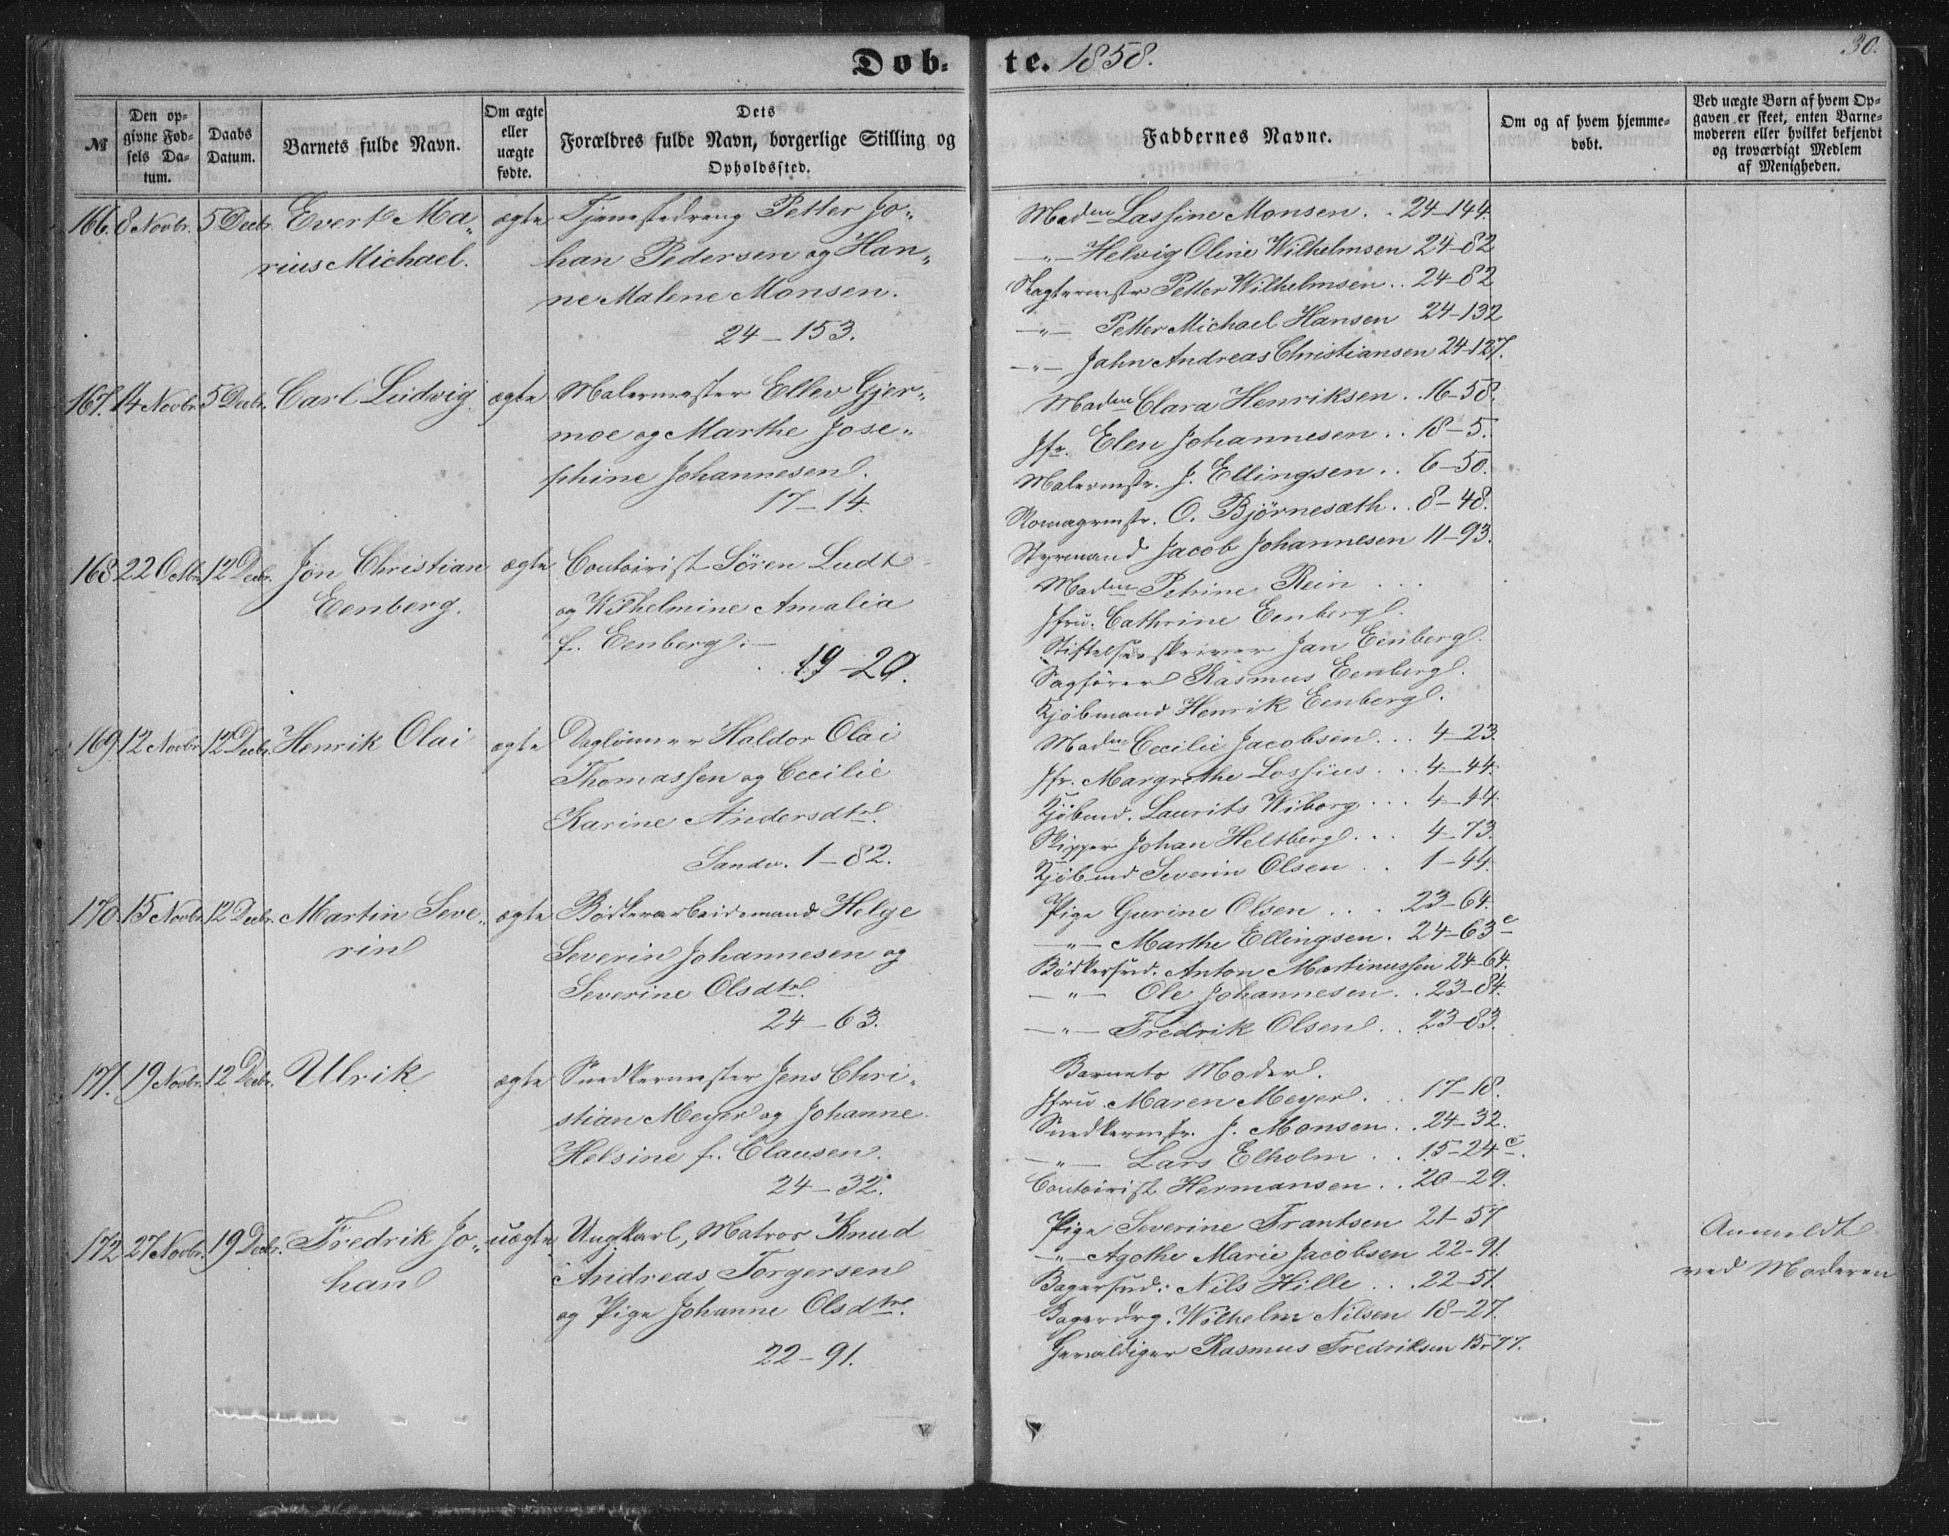 Døb-
te. 1858.
30.
№
Den op-
givne Fød-
sels Da-
tum.
Daabs
Datum.
Barnets fulde Navn.
Om ægte
eller
uægte
fødte.
Dets
Forældres fulde Navn, borgerlige Stilling og
Opholdssted.
Faddernes Navne.
Om og af hvem hjemme-
døbt.
Ved uægte Børn af hvem Op-
gaven er skeet, enten Barne-
moderen eller hvilket bekjendt
og troværdigt Medlem
af Menigheden.
166. 8 Novbr. 5 Decbr. Evert Ma„ ægte Tjenestedreng Petter Jo„
rius Michael. han Pedersen og Han„
ne Malene Monsen.
24–153.
Madm Lassine Monsen . . 24–144.
–„– Helvig Oline Wilhelmsen 24–82
Slagtermstr Petter Wilhelmsen . . 24–82
–„– Petter Michael Hansen 24–132
–„– Jahn Andreas Christiansen 24–127.
167. 14 Novbr. 5 Decbr. Carl Ludvig. ægte Malermester Ellev Gjer„
moe og Marthe Jose„
phine Johannesen.
17–14.
Madm Clara Henriksen . 16–58.
Jfr. Elen Johannesen . . 18–5.
Malermstr. J. Ellingsen . . 6–50.
Skomagermstr. O. Bjørnesæth . . 8–48.
Styrmand Jacob Johannesen 11–93.
168 22 Octbr. 12 Decbr. Jon Christian ægte Contoirist Sören Ludt
Eenberg. og Wilhelmine Amalia
f. Eenberg. –
19–20.
Madm Petrine Rein . . .
Jfru. Cathrine Eenberg.
Stiftelsesskriver Jan Eenberg.
Sagfører Rasmus Eenberg.
Kjöbmand Henrik Eenberg.
169. 12 Novbr. 12 Decbr. Henrik Olai ægte Daglönner Haldor Olai
Thomassen og Cecilie
Karine Andersdtr.
Sandv. 1–82.
Madm Cecilie Jacobsen . . . 4–23
Jfr. Margrethe Lossius . . . 4–44.
Kjöbmd. Laurits Wiborg . . . 4–44
Skipper Johan Heltberg . . . 4–73.
Kjöbmd Severin Olsen . . 1–44.
170. 15 Novbr. 12 Decbr. Martin Seve„ ægte Bödkerarbeidsmand Helge
rin Severin Johannesen og
Severine Olsdtr.
24–63.
Pige Gurine Olsen . . . 23–64.
–„– Marthe Ellingsen . 24–63c
Bödkersvd. Anton Martinussen 24–64.
–„– Ole Johannesen . . 23–84.
–„– Fredrik Olsen . . 23–83.
171. 19 Novbr. 12 Decbr. Ulrik ægte Snedkermester Jens Chri„
stian Meyer og Johanne
Helsine f. Clausen.
24–32.
Barnets Moder.
Jfru Maren Meyer. . . 17–18.
Snedkermstr. J. Monsen . . 24–32.
–„– Lars Elholm . . 15–24c.
Contoirist Hermansen . . 20–29.
172 27 Novbr. 19 Decbr. Fredrik Jo„ uægte Ungkarl, Matros Knud
han Andreas Torgersen
og Pige Johanne Olsdtr.
22–91.
Pige Severine Frantsen 21–57
–„– Agothe Marie Jacobsen 22–91.
Bagersvd: Nils Hille . . . 22–51.
Bagerdrg. Wilhelm Nilsen 18–27.
Gevaldiger Rasmus Fredriksen 15–77.
Anmeldt
ved Moderen